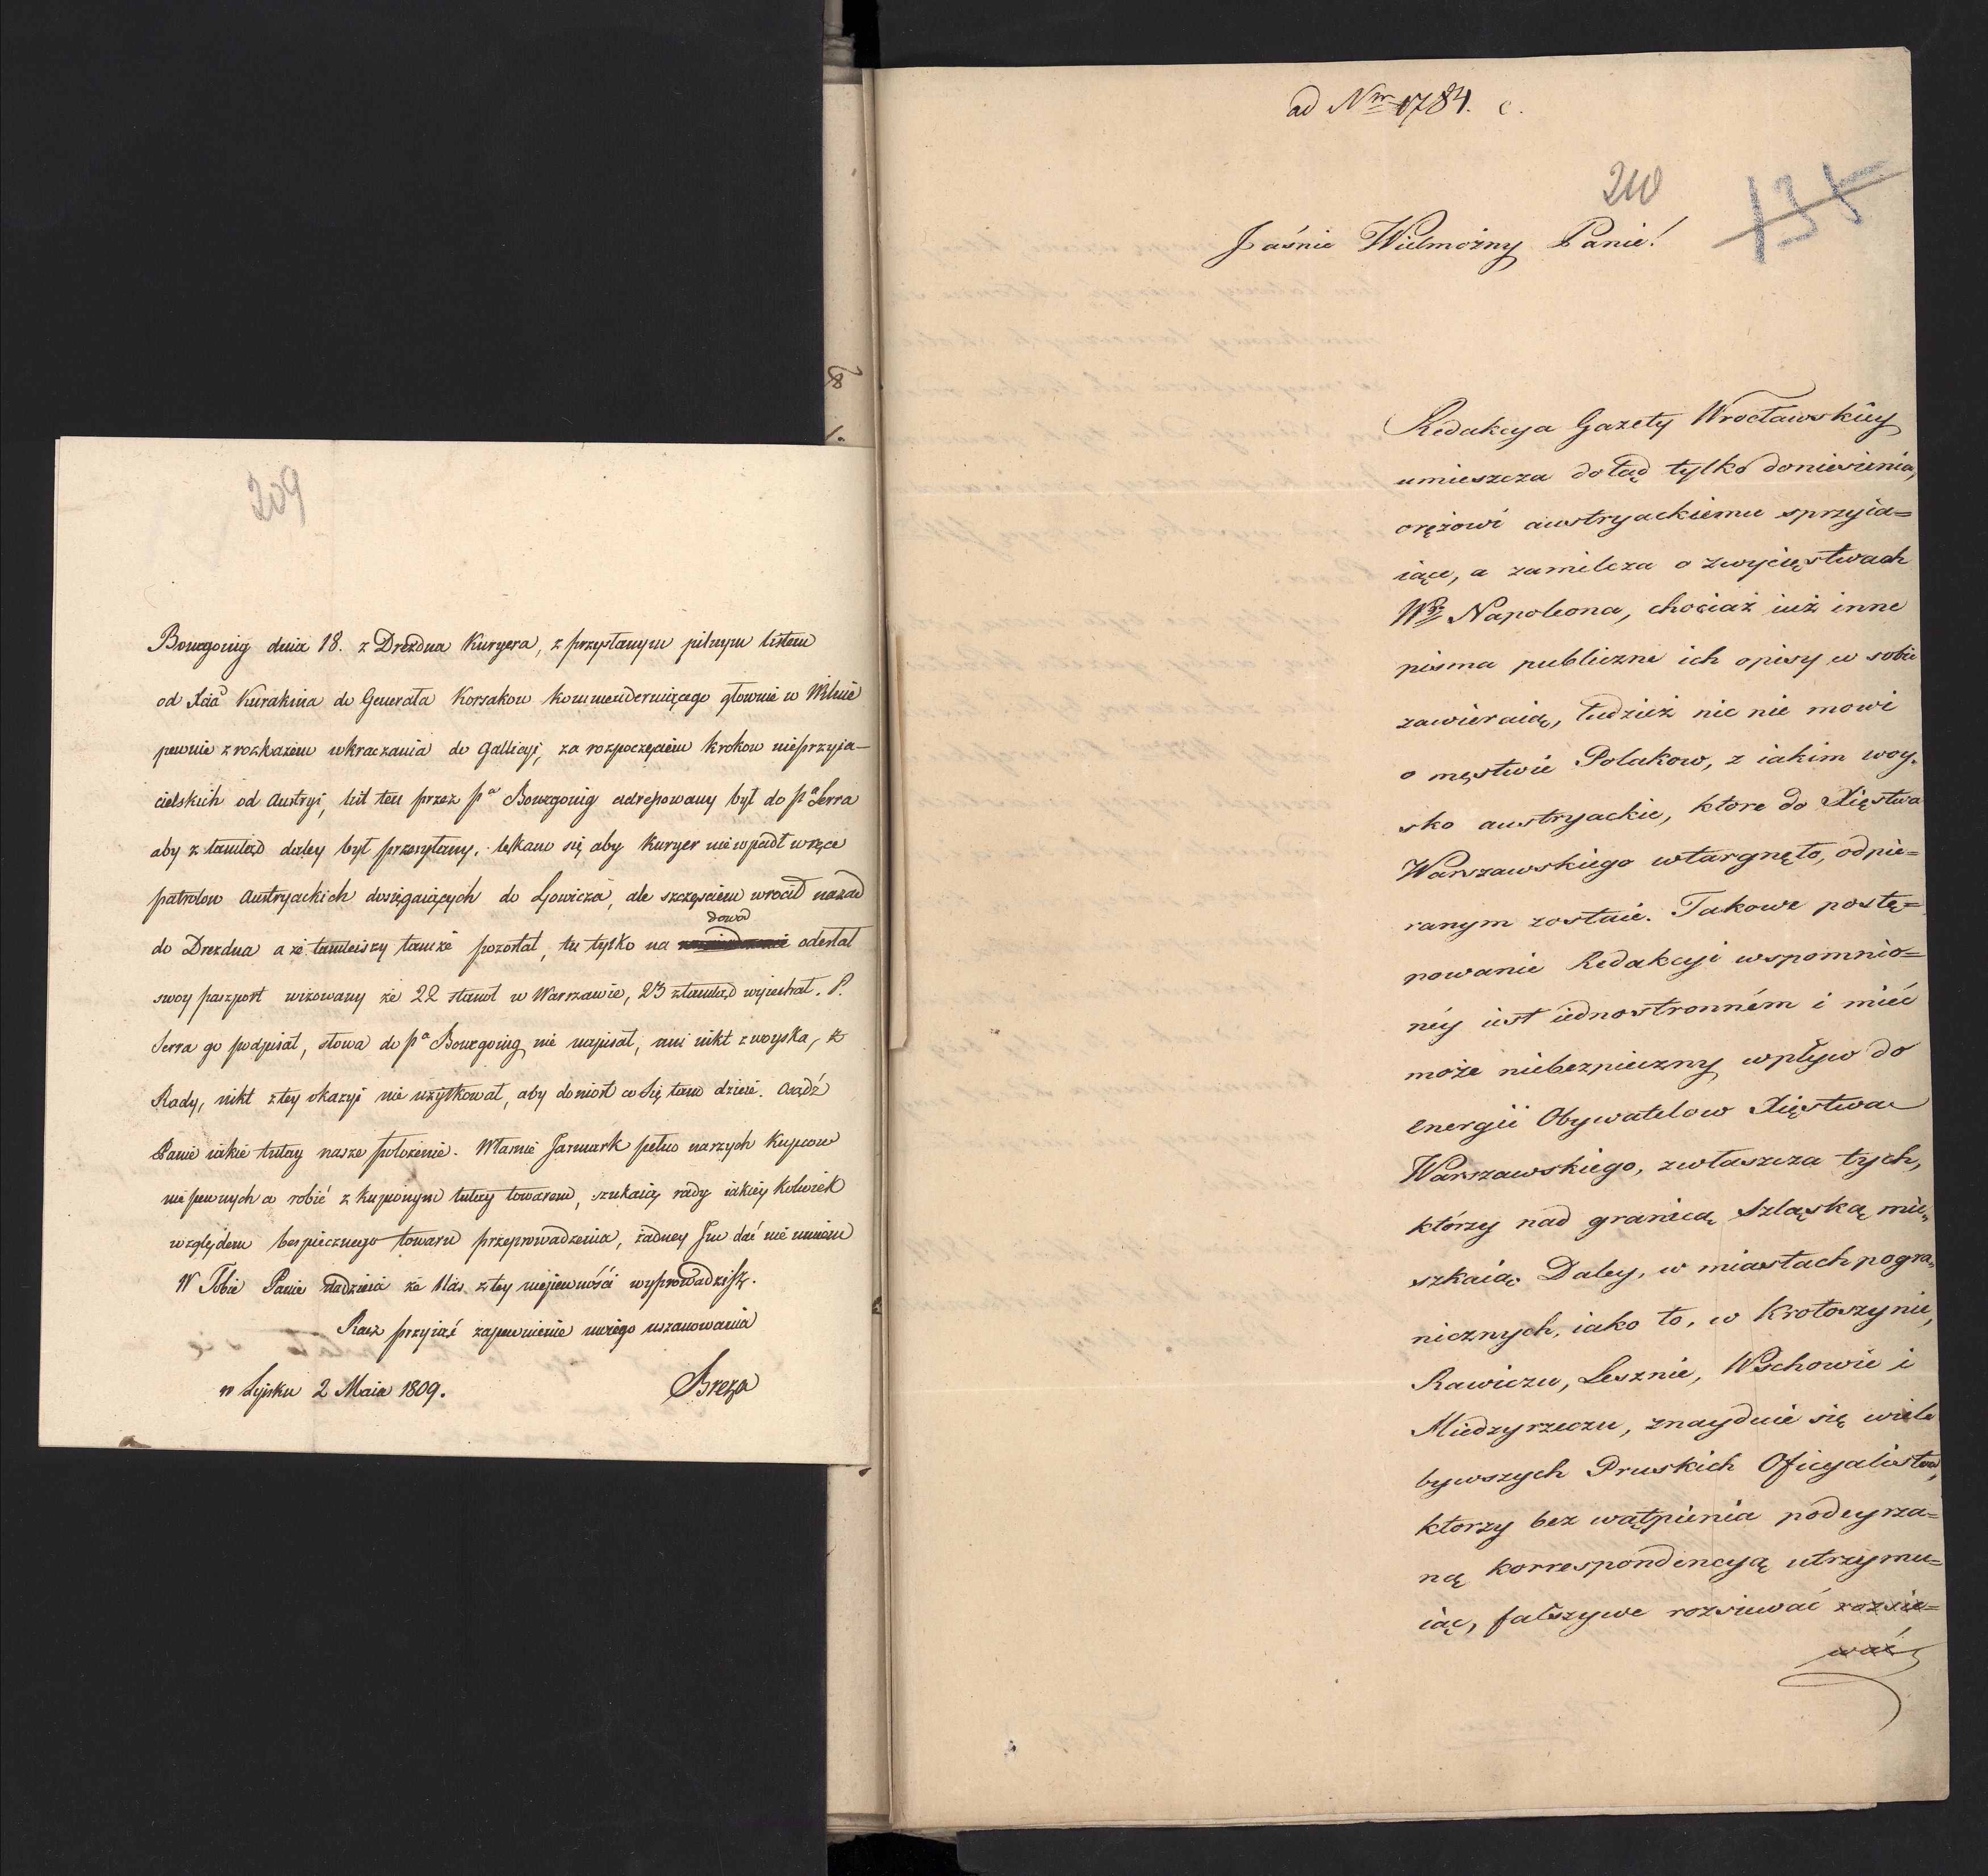 209
Bourgoing dnia 18. z Drezdna Kuryera, z przysłanym pilnym listem
od Xcia Kurakina do Generała Korsakow kommenderuiącego głownie w Wilnie
pewnie z rozkazem wkraczania do Gallicyi, za rozpoczęciem krokow nieprzyia-
cielskich od Austryi, list ten przez Pa Bourgoing adressowany był do Pa Serra
aby z tamtąd daley był przesyłany, lękam się aby Kuryer nie wpadł w ręce
patrolow Austryackich dosięgaiących do Łowicza, ale szczęsciem wrocił nazad
dowod
do Drezdna a że tamteiszy tamże pozostał, tu tylko na odesłał
swoy paszport wizowany że 22 stanoł w Warszawie, 23 ztamtąd wyiechał. P.
Serra go podpisał, słowa do Pa Bourgoing nie napisał, ani nikt z woyska, z
Rady, nikt z tey okazyi nie użytkował, aby doniosł co się tam dzieie. Osądź
Panie iakie tutay nasze położenie. Własnie Jarmark pełno naszych Kupcow
niepewnych co robić z kupionym tutay towarem, szukaią rady iakiey kolwiek
względem bespiecznego towaru przeprowadzenia, żadney Im dać nie umiem
W Tobie Panie nadzieia że Nas z tey niepewności wyprowadzisz.
Racz przyiąć zapewnienie mojego uszanowania
w Lipsku 2 Maia 1809.
Breza
ad Nr 1784. c.
210
135
Jaśnie Wielmożny Panie!
Redakcya Gazety Wrocławskiey
umieszcza dotąd tylko doniesienia,
orężowi austryackiemu sprzyia=
iące, a zamilcza o zwycięstwach
Wgo Napoleona, chociaż iuż inne
pisma publiczne ich opisy w sobie
zawieraią, tudzież nic nie mowi
o męstwie Polakow, z iakim woy=
sko austryackie, ktore do Xięstwa
Warszawskiego wtargnęło, odpie=
ranym zostaie. Takowe postę=
powanie Redakcyi wspomnio=
néy iest iednostronném i mieć
może niebezpieczny wpływ do
energii Obywatelow Xięstwa
Warszawskiego, zwłaszcza tych,
którzy nad granicą Szląską mie=
szkaią. Daley, w miastach pogra=
nicznych, iako to, w Krotoszynie,
Rawiczu, Lesznie, Wschowie i
Miedzyrzeczu, znayduie się wiele
bywszych Pruskich Oficyalistow,
ktorzy bez wątpienia podeyrza=
ną korrespondencyą utrzymu=
iąc, fałszywe rozsiewać rozsie=
wać